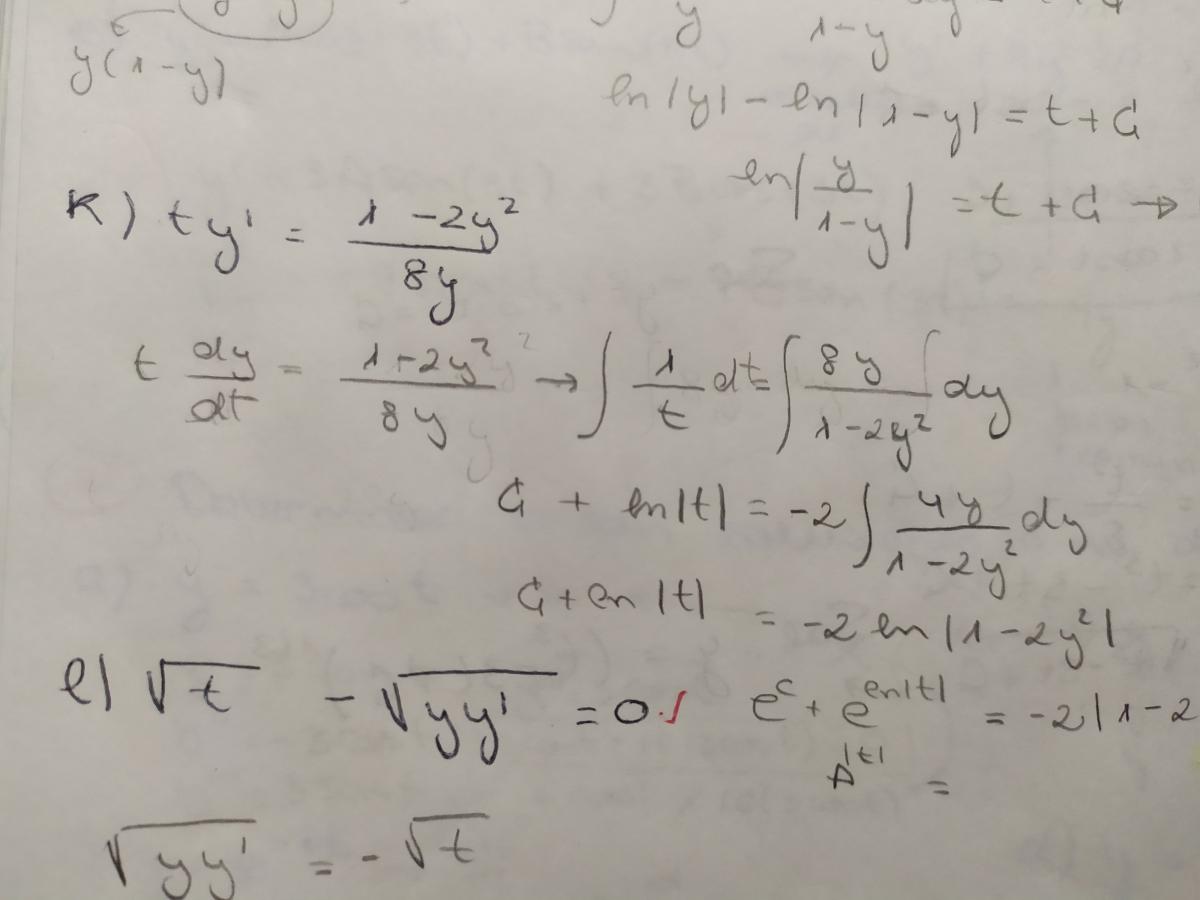 y(1-y)
ln|y| - ln|1-y| = t + C
ln|y/(1-y)| = t + C →
k) ty' = (1-2y²)/(8y)
t dy/dt = (1+2y²)/(8y) → ∫ 1/t dt = ∫ 8y/(1-2y²) dy
C + ln|t| = -2 ∫ 4y/(1-2y²) dy
C + ln|t| = -2 ln|1-2y²|
e^c + e^(ln|t|) = -2|1-2
l) √t - √(yy') = 0
√(yy') = -√t